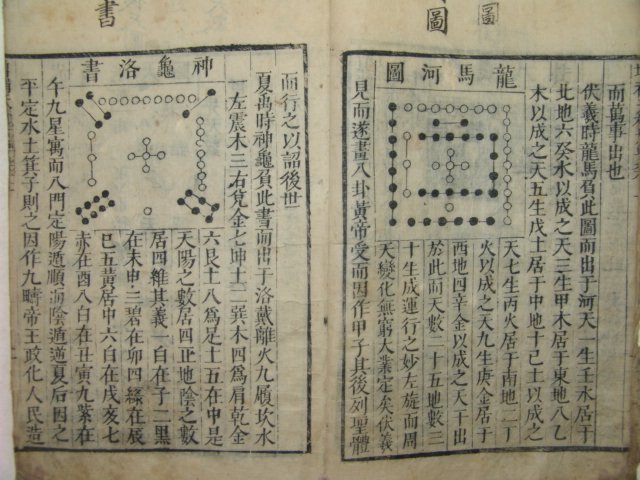 圖
圖
而萬事出也
伏羲時龍馬負此圖而出于河天一生壬水居于
北地六癸水以成之天三生甲木居于東地八乙
木以成之天五生戊土居于中地十己土以成之
龍馬河圖
天七生丙火居于南地二丁
火以成之天九生庚金居于
西地四辛金以成之天干出
於此而天數二十五地數三
十生成運行之妙左旋而周
天變化無窮大業定矣伏羲
見而遂畫八卦黃帝受而因作甲子其後列聖體
書
而行之以詔後世
夏禹時神龜負此書而出于洛戴離火九履坎水
一左震木三右兌金七坤土二巽木四爲肩乾金
神龜洛書
六艮土八爲足土五在中是
天陽之數居四正地陰之數
居四維其義一白在子二黑
在未申三碧在卯四綠在辰
巳五黃居中六白在戌亥七
赤在酉八白在丑寅九紫在
午九星寓而八門定陽遁順而陰遁逆夏后因之
平定水土箕子則之因作九疇帝王政化人民造